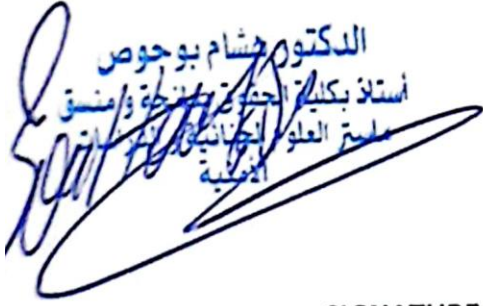 الدكتور هشام بوحوص
أستاذ بكلية الحقوق بطنجة ومنسق
ماستر العلوم الجنائية والدراسات
الأمنية